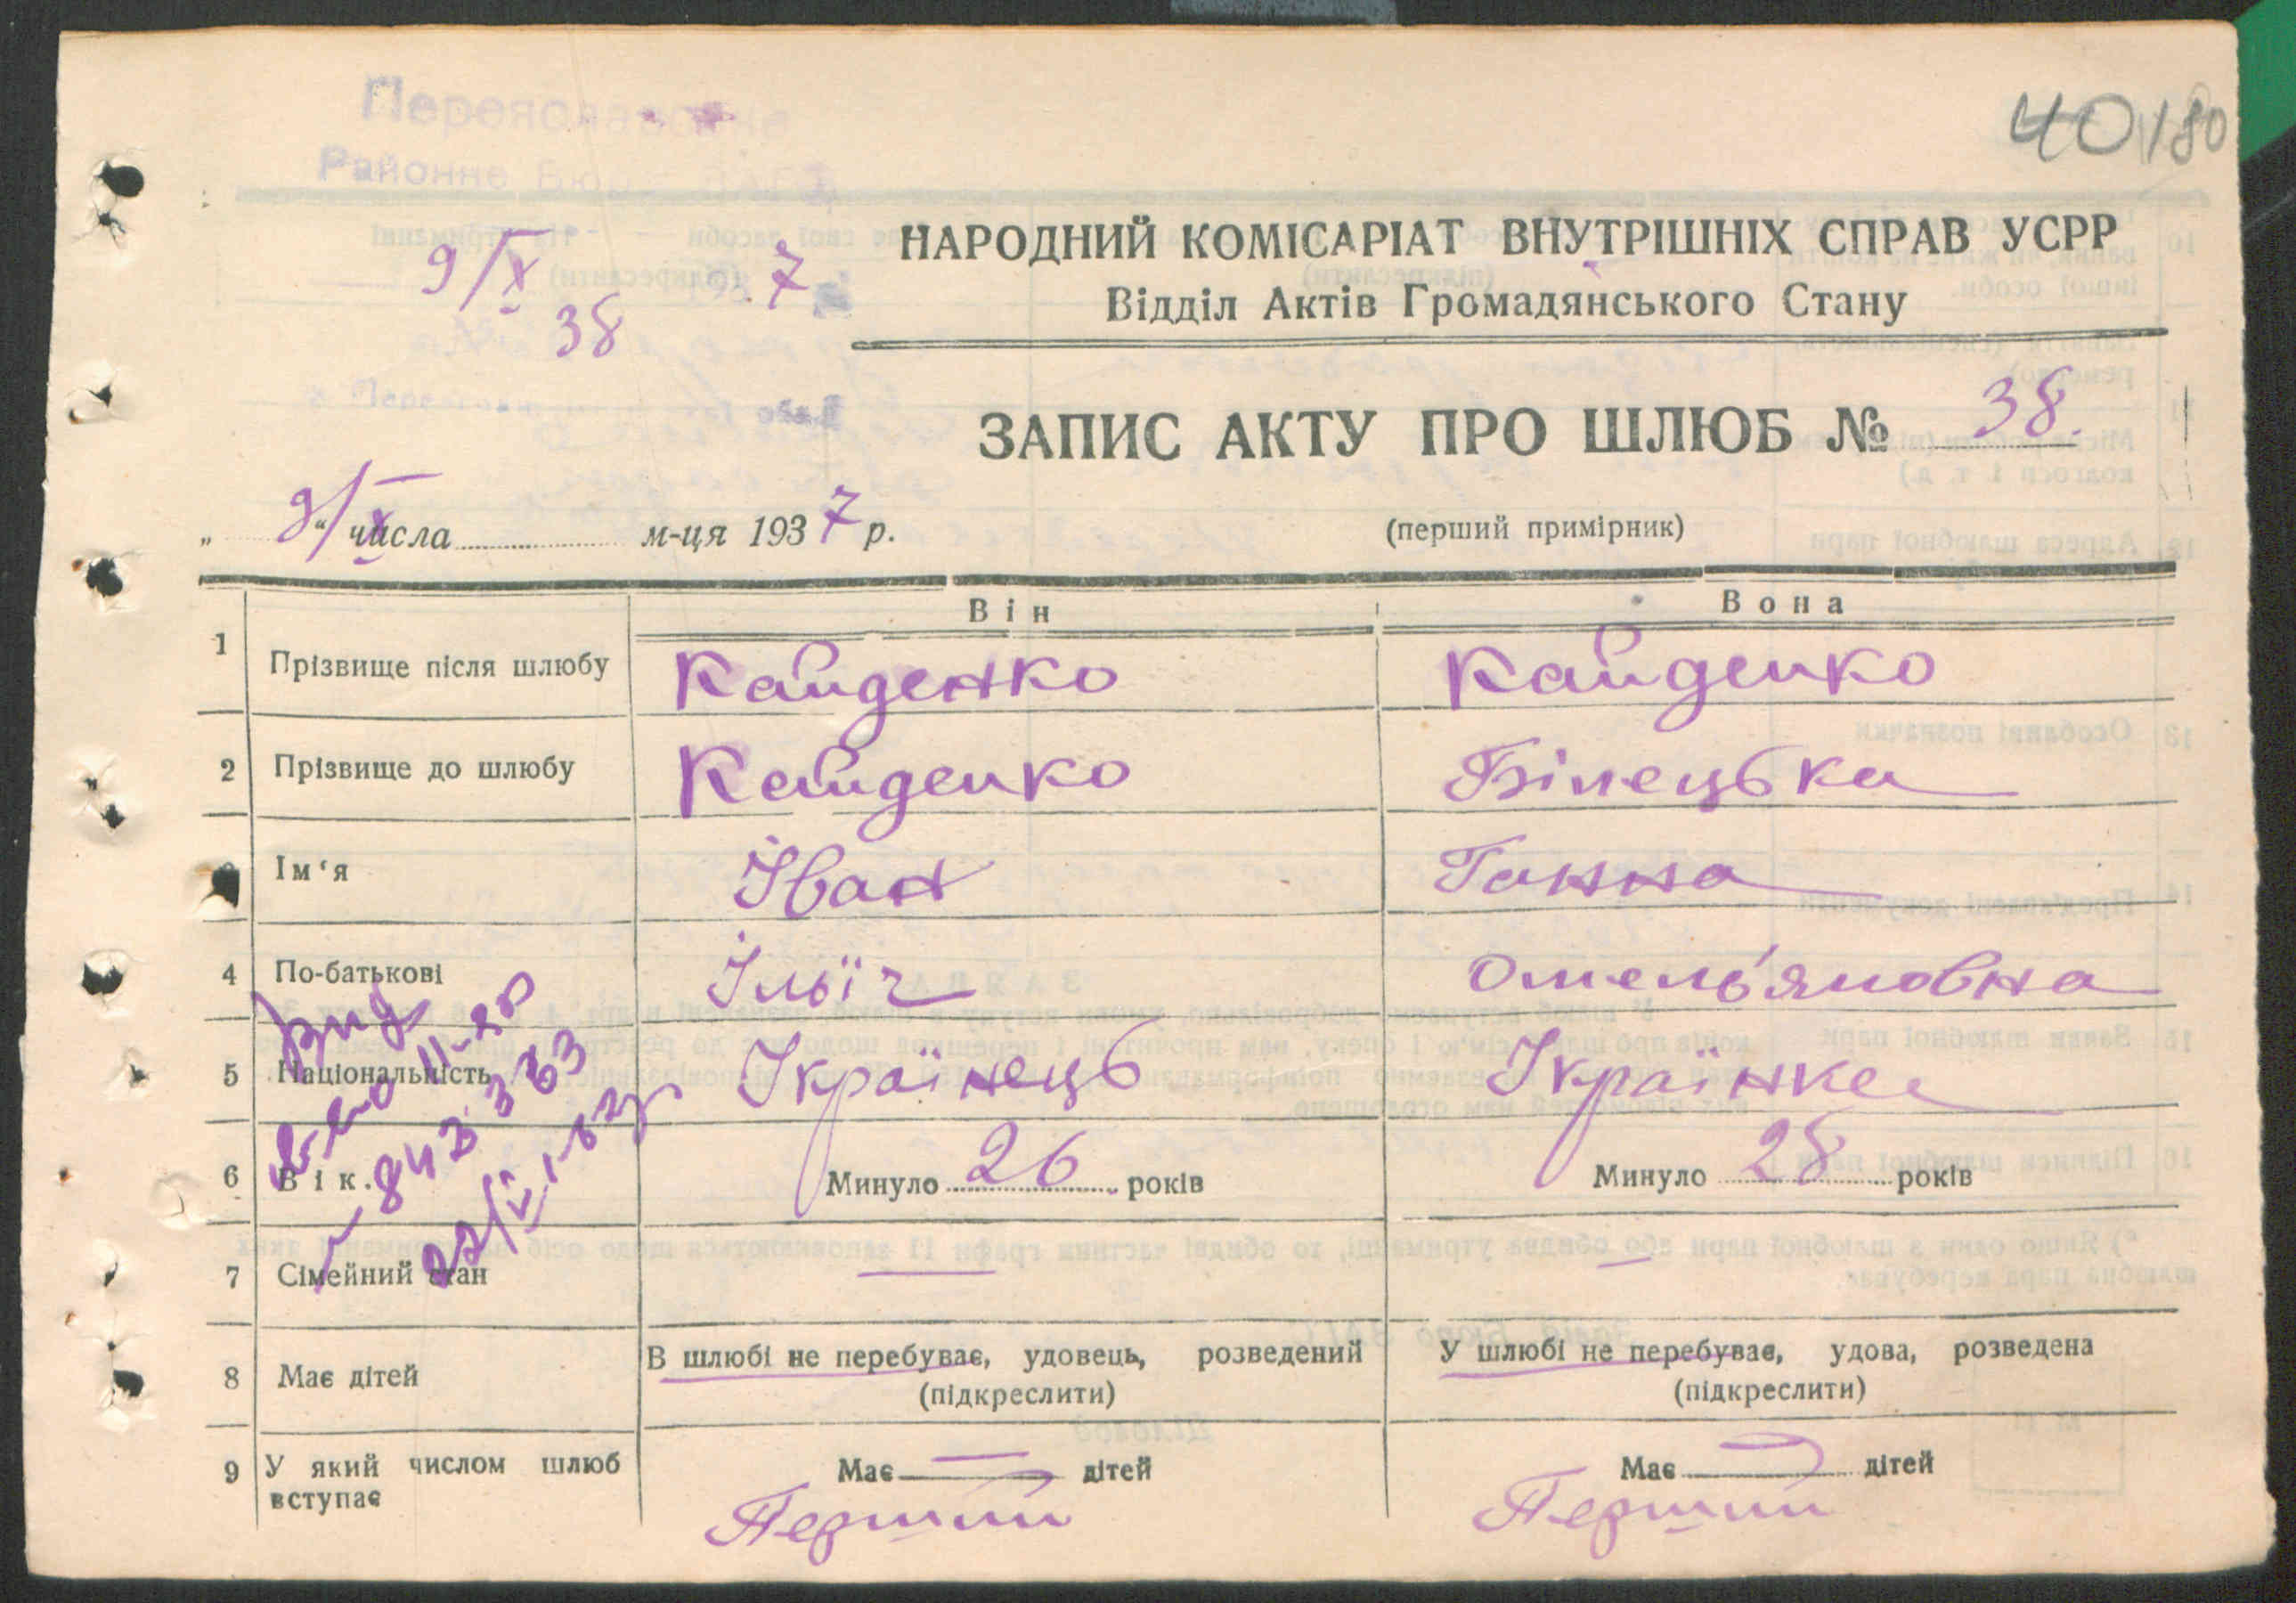 40 180
Переяславське
Районне Бюро ЗАГС
9/X 7
38
НАРОДНИЙ КОМІСАРІАТ ВНУТРІШНІХ СПРАВ УСРР
Відділ Актів Громадянського Стану
ЗАПИС АКТУ ПРО ШЛЮБ № 38.
„ 9/X “ числа м-ця 1937 р.
(перший примірник)
Він Вона
1 Прізвище після шлюбу Кайденко Кайденко
2 Прізвище до шлюбу Кайденко Білецька
Ім‘я Іван Ганна
4 По-батькові Ільїч Омель'яновна
5 Національність Українець Українка
6 Вік. Минуло 26 років Минуло 28 років
7 Сімейний стан — —
8 Має дітей В шлюбі не перебуває, удовець, розведений У шлюбі не перебуває, удова, розведена
(підкреслити) (підкреслити)
9 У який числом шлюб вступає Має — дітей Має — дітей
Перший Перший
843363